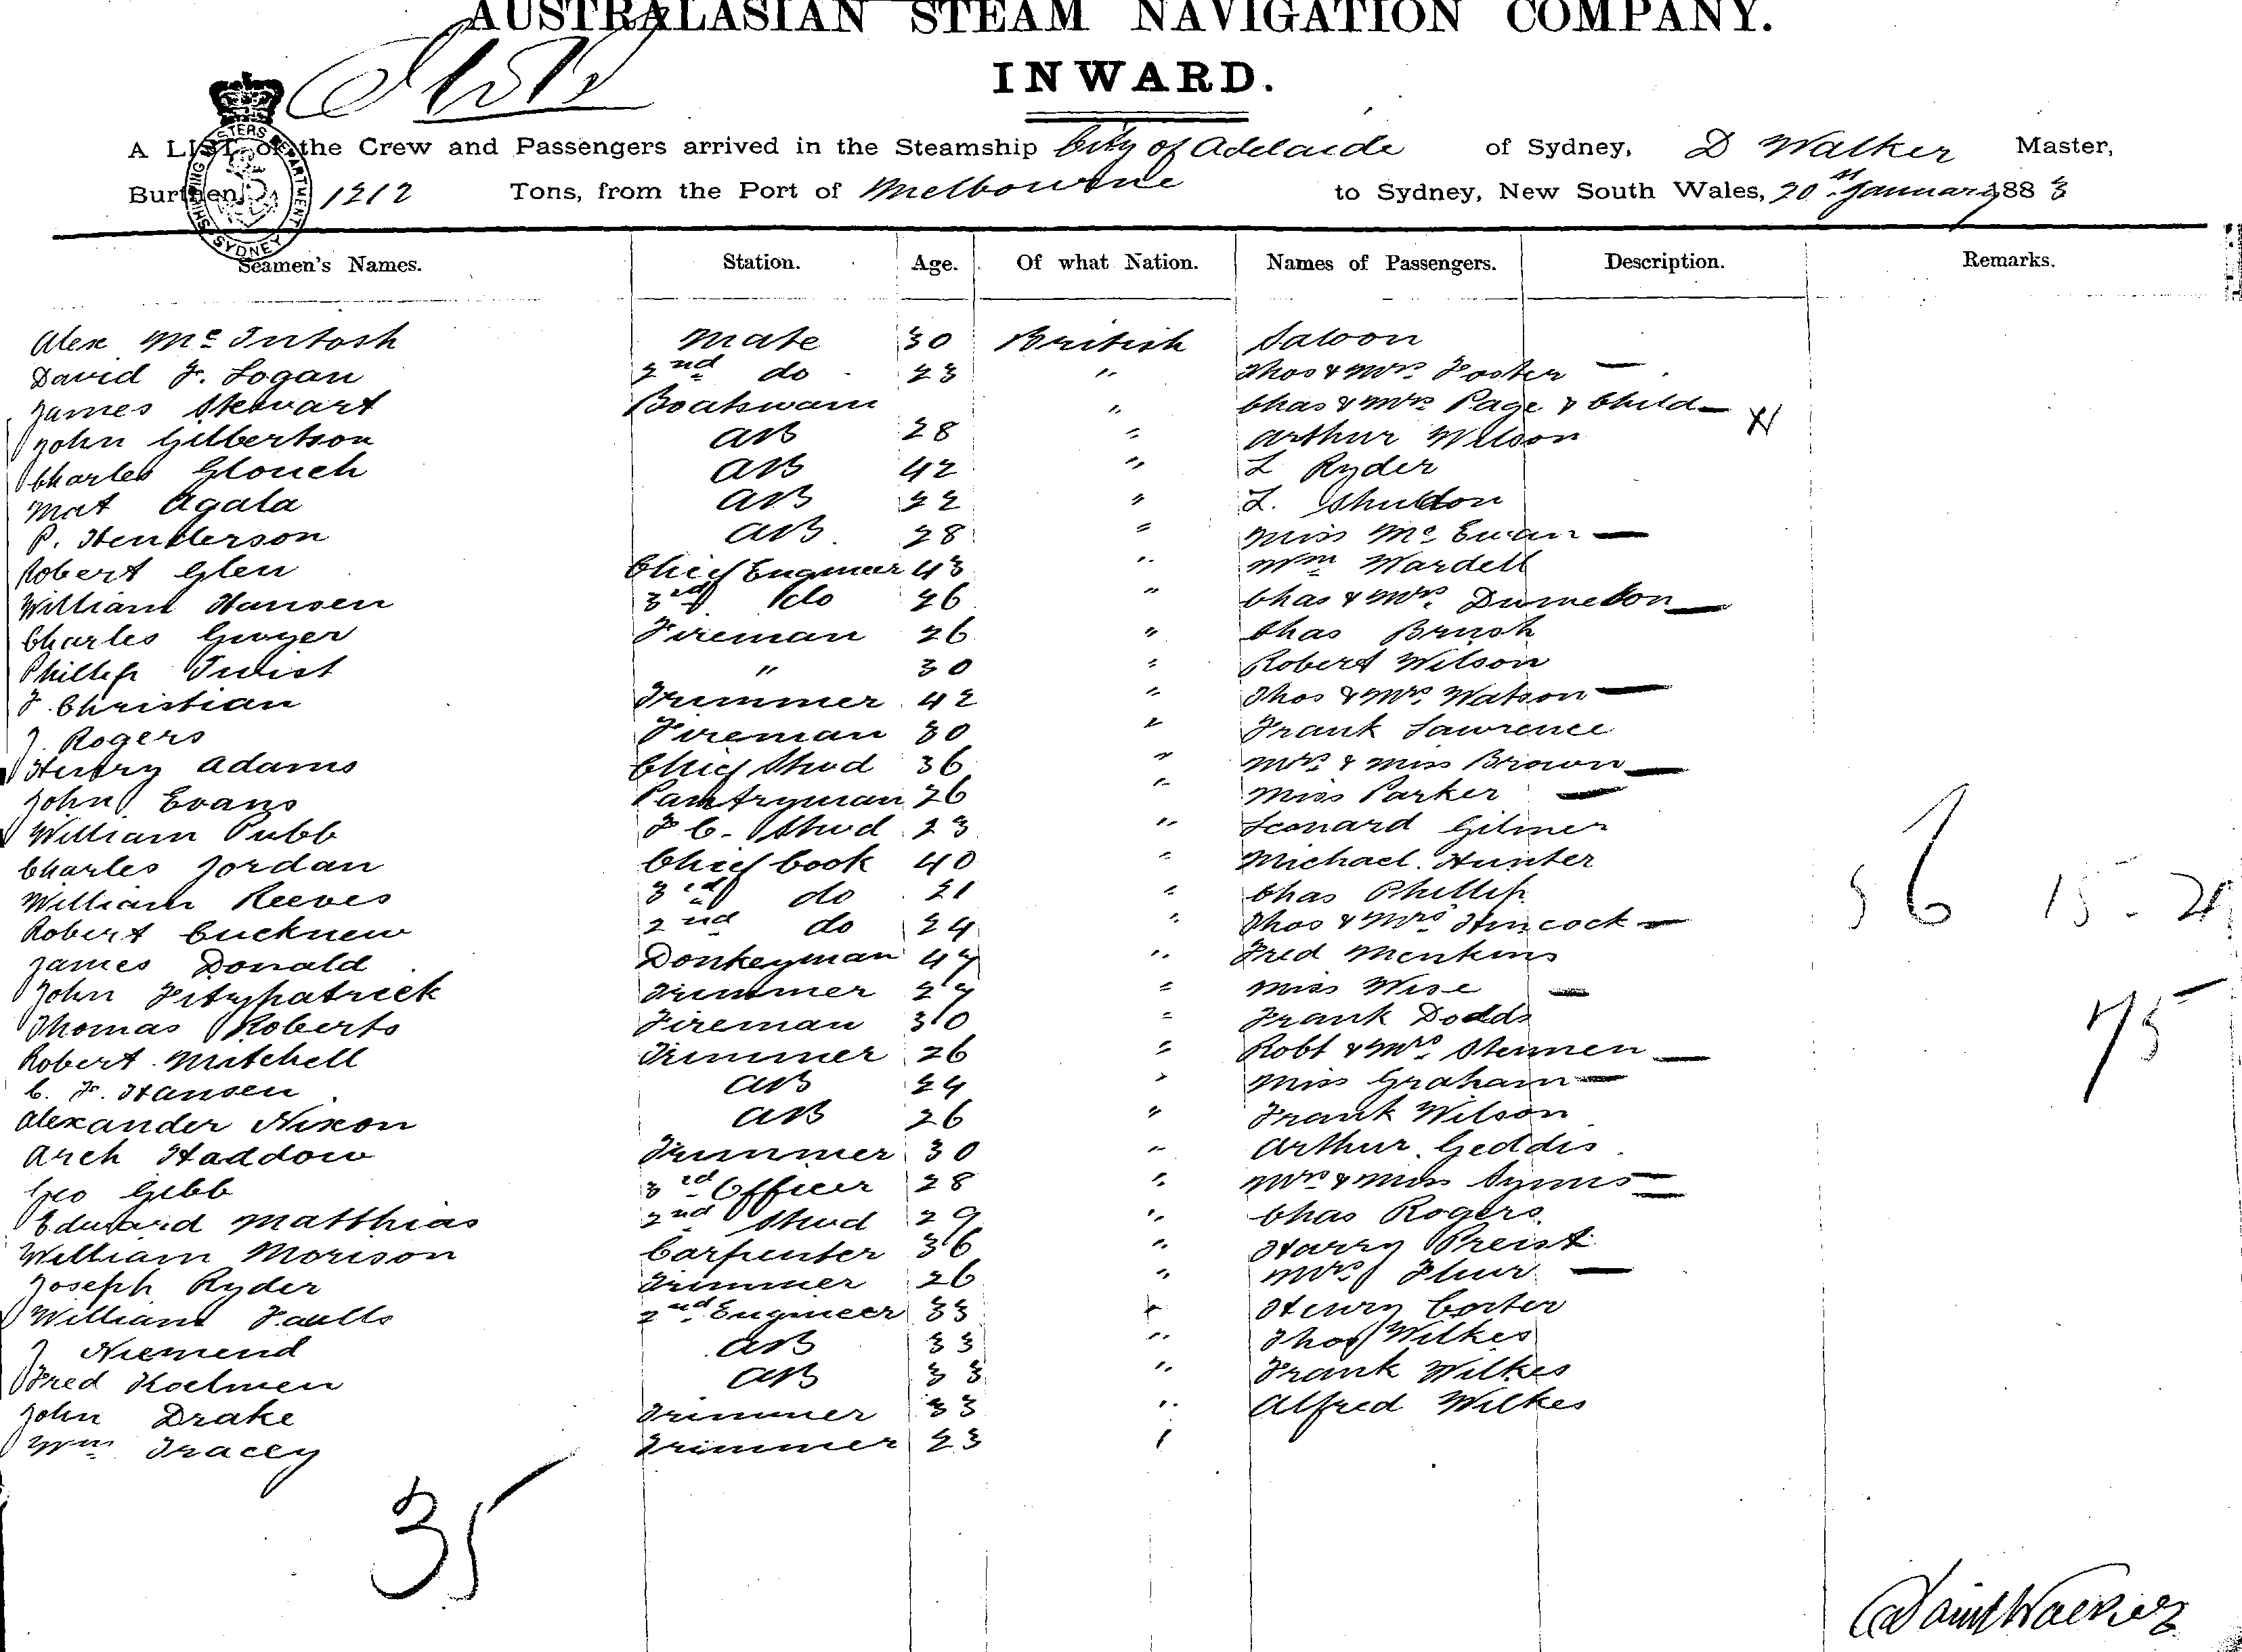 AUSTRALASIAN STEAM NAVIGATION COMPANY.
INWARD.
A LIST of the Crew and Passengers arrived in the Steamship City of Adelaide of Sydney, D Walker Master,
Burthen 1212 Tons, from the Port of Melbourne to Sydney, New South Wales, 20th January 1883
SHIPPING MASTERS DEPARTMENT SYDNEY
Seamen's Names. Station. Age. Of what Nation. Names of Passengers. Description. Remarks.
Alex McIntosh Mate 30 British Saloon
David F. Logan 2nd do 23 " Thos & Mrs Foster —
James Stewart Boatswain " Chas & Mrs Page & Child —
John Gilbertson AB 28 " Arthur Wilson
Charles Glouch AB 42 " L Ryder
Mat Agala AB 22 " L.
P. Henderson AB 28 " Miss McEwan —
Robert Glen Chief Engineer 43 " Wm Wardell
William Hansen 3rd do 26 " Chas & Mrs —
Charles Gwyer Fireman 26 " Chas Brush
Phillip Twist " 30 " Robert Wilson
F. Christian Trimmer 42 " Thos & Mrs Watson —
J. Rogers Fireman 30 " Frank Lawrence
Henry Adams Chief Stwd 36 " Mrs & Miss Brown —
John Evans Pantryman 26 " Miss Parker —
William Pubb F C. Stwd 23 " Leonard Gilmer
Charles Jordan Chief Cook 40 " Michael Hunter
William Reeves 3rd do 21 " Chas Phillip
Robert Cucknew 2nd do 24 " Thos & Mrs Hincock —
James Donald Donkeyman 47 " Fred Menkins
John Fitzpatrick Trimmer 27 " Miss Wise —
Thomas Roberts Fireman 30 " Frank Dodds
Robert Mitchell Trimmer 26 " Robt & Mrs —
C. F. Hansen AB 24 " Miss Graham —
Alexander Nixon AB 26 " Frank Wilson
Arch Haddow Trimmer 30 " Arthur Geddis
Geo Gibb 3rd Officer 28 " Mrs & Miss Symes —
Edward Matthias 2nd Stwd 29 " Chas Rogers
William Morison Carpenter 36 " Harry Preist
Joseph Ryder Trimmer 26 " Mrs —
William Faulls 2nd Engineer 33 " Henry Carter
J Niemend AB 33 " Thos Wilkes
Fred Koelmen AB 33 " Frank Wilkes
John Drake Trimmer 33 " Alfred Wilkes
Wm Tracey Trimmer 23 "
56 15 - 21
75
35
David Walker